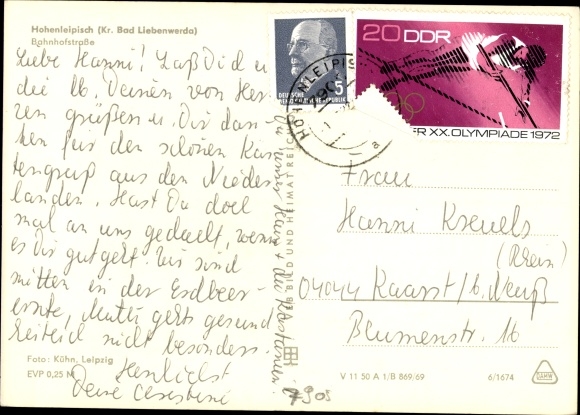 Hohenleipisch (Kr. Bad Liebenwerda)
Bahnhofstraße
Liebe Hanni! Laß Dich u
die lb. Deinen von Her-
zen grüßen u. Dir dan-
ken für den schönen Kar-
tengruß aus den Nieder-
landen. Hast Du doch
mal an uns gedacht, wenn
es Dir gut geht. Wir sind
mitten in der Erdbeer-
ernte, Mutti geht's gesund
heitlich nicht besonders.
Herzlichst
Deine
Foto: Kühn, Leipzig
EVP 0,25 M
BILD UND HEIMAT REIC
5
DEUTSCHE
DEMOKRATISCHE REPUBLIK
HOHENLEIPIS
a
20 DDR
ER XX. OLYMPIADE 1972
Frau
Hanni Kreuels
(Rhein)
04044 Kaarst/b. Neuß
Blumenstr. 16
V 11 50 A 1/B 869/69
6/1674